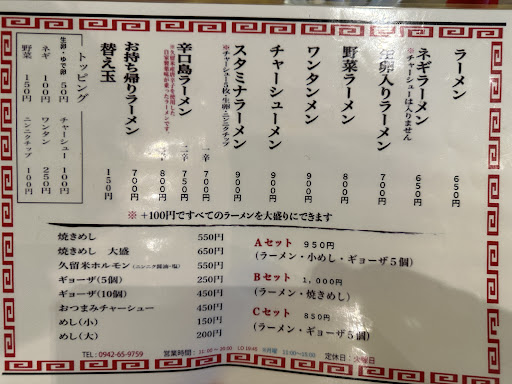 ラーメン 650円
ネギラーメン 650円
※チャーシューは入りません
生卵入りラーメン 700円
野菜ラーメン 800円
ワンタンメン 900円
チャーシューメン 900円
スタミナラーメン 900円
※チャーシュー5枚・生卵・ニンニクチップ
辛口島ラーメン
一辛 700円
二辛 750円
800円
お持ち帰りラーメン 700円
替え玉 150円
トッピング
生卵・ゆで卵 50円
ネギ 100円
野菜 150円
チャーシュー 100円
ワンタン 250円
ニンニクチップ 100円
※ +100円ですべてのラーメンを大盛りにできます
焼きめし 550円
焼きめし 大盛 650円
久留米ホルモン(ニンニク醤油・塩) 550円
ギョーザ(5個) 250円
ギョーザ(10個) 450円
おつまみチャーシュー 450円
めし(小) 150円
めし(大) 200円
Aセット 950円
(ラーメン・小めし・ギョーザ5個)
Bセット 1,000円
(ラーメン・焼きめし)
Cセット 850円
(ラーメン・ギョーザ5個)
TEL:0942-65-9759 営業時間: 定休日:火曜日